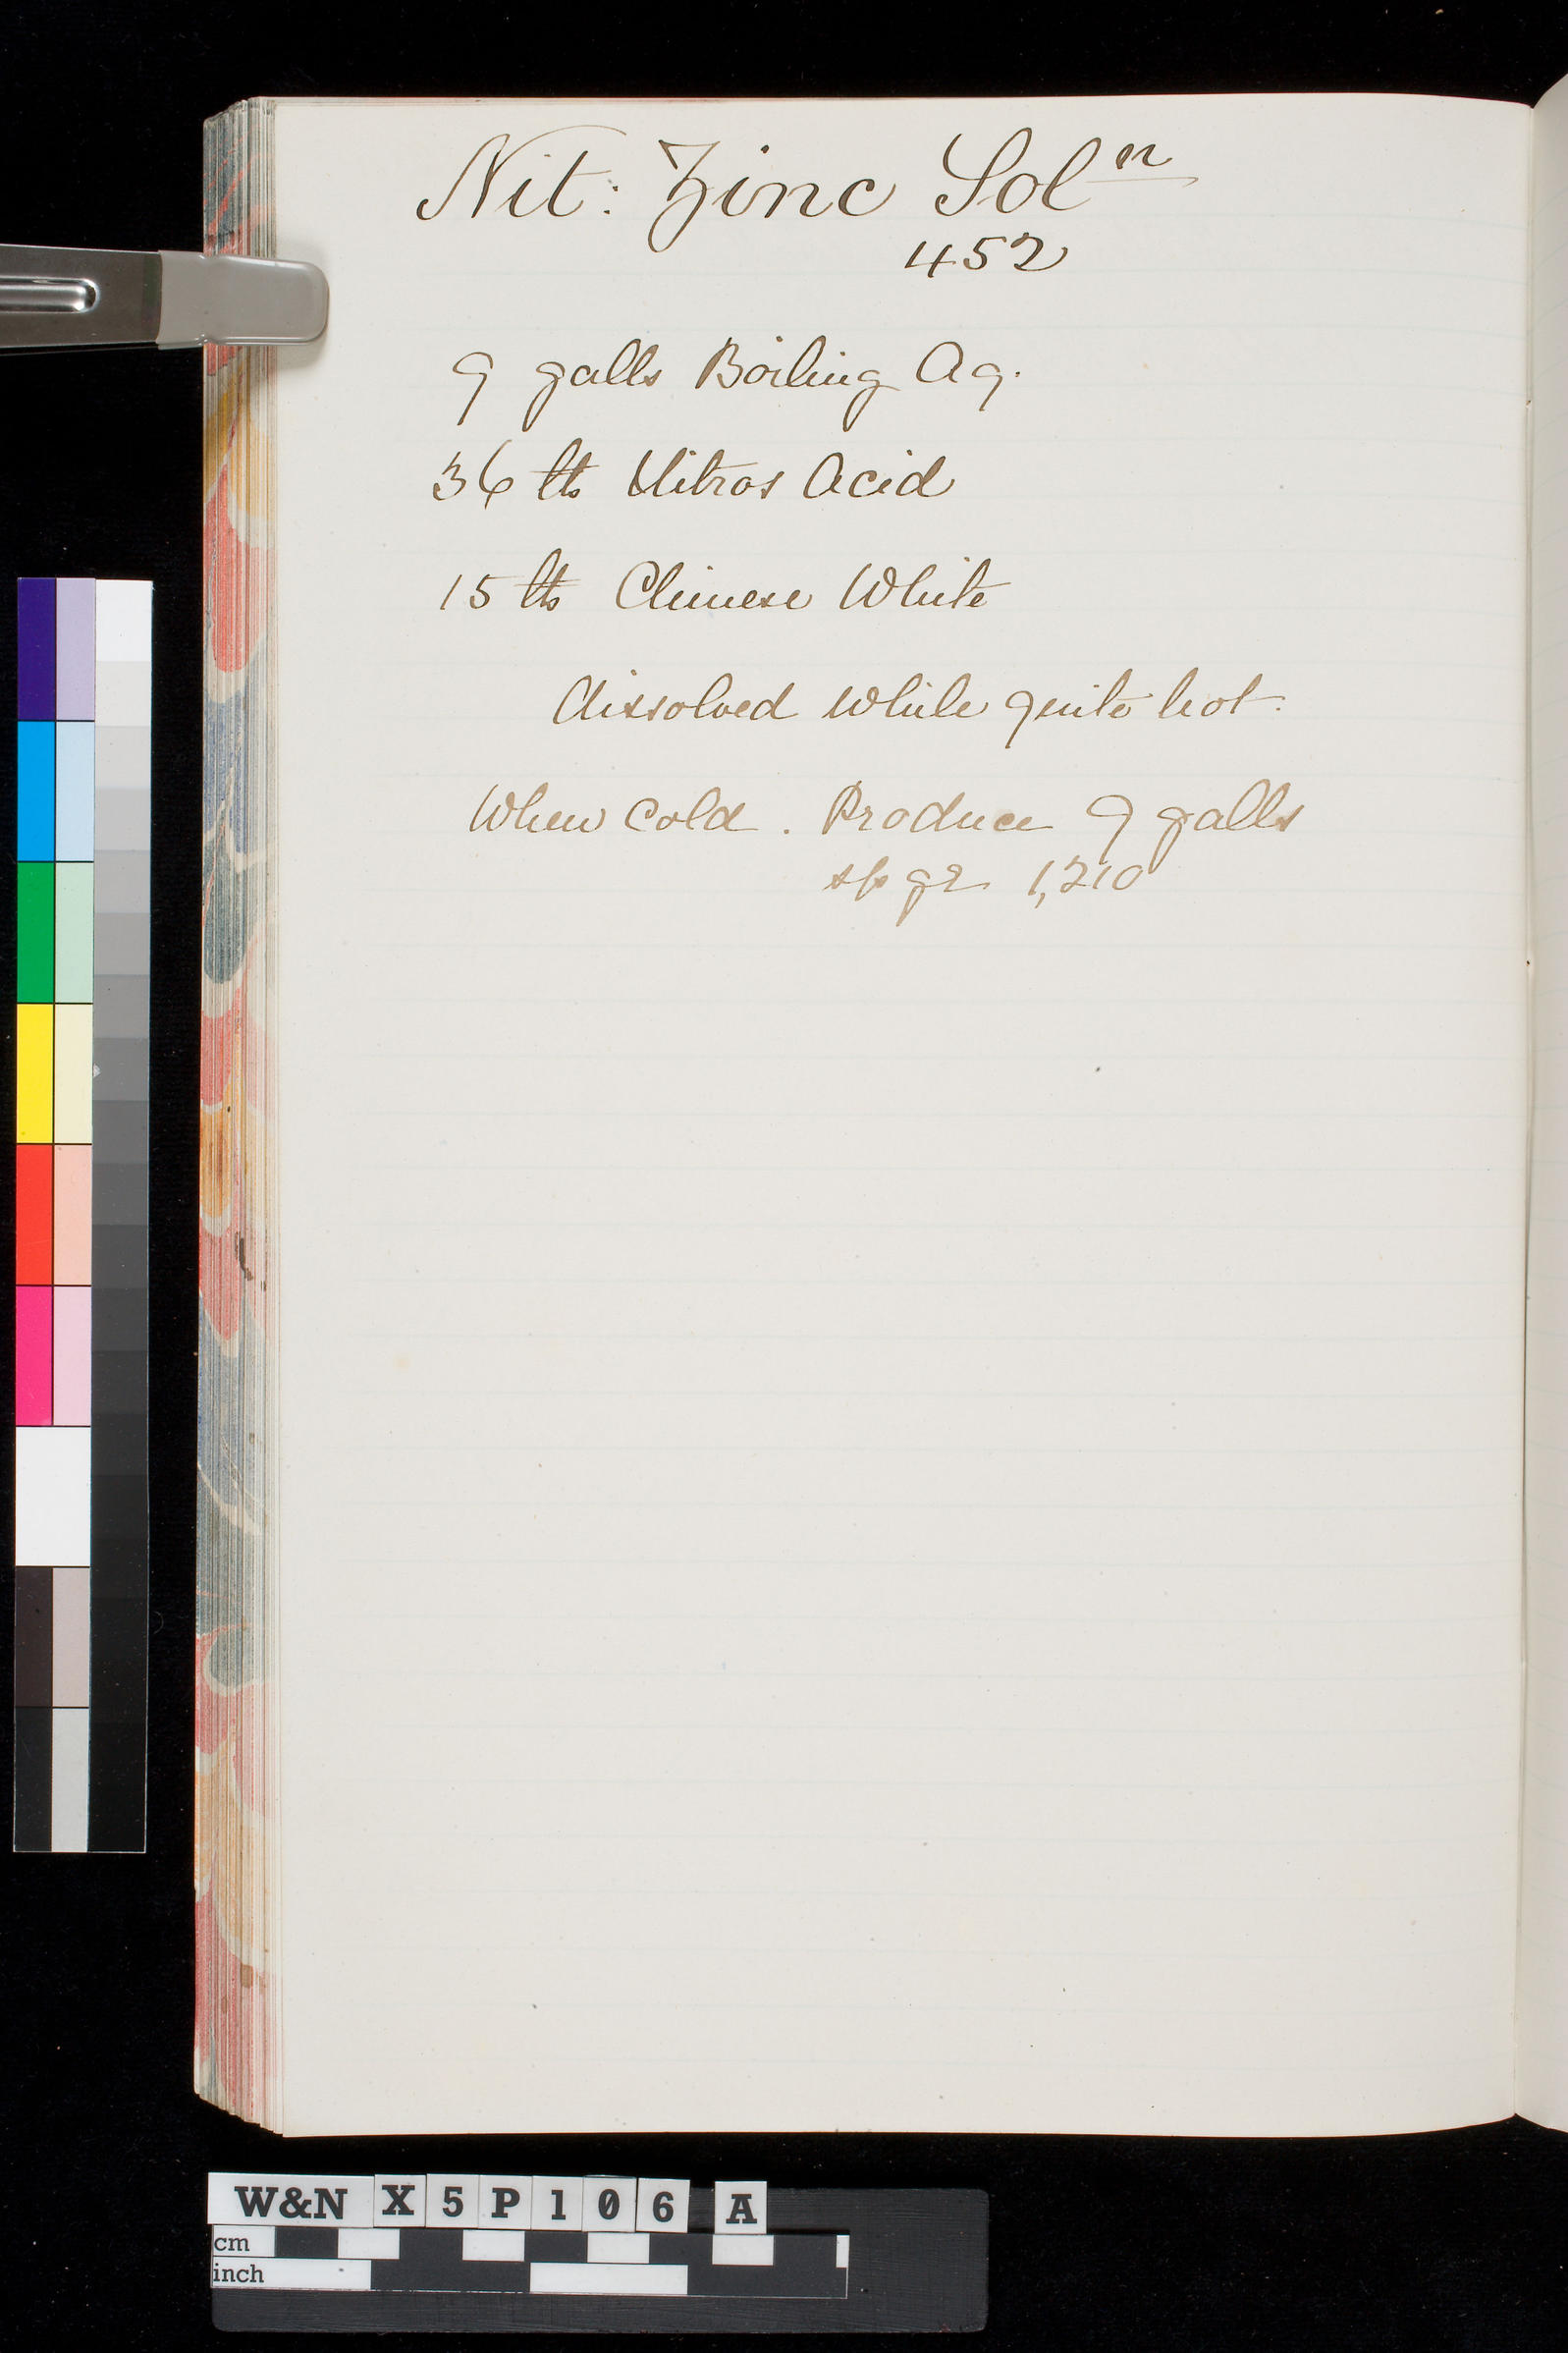 Nit: Zinc Solⁿ
452
9 galls Boiling Aq.
36 lbs Nitros Acid
15 lbs Chinese White
dissolved while quite hot.
When Cold. Produce 9 galls
sp gr 1,210
W&N X5P106 A
cm
inch